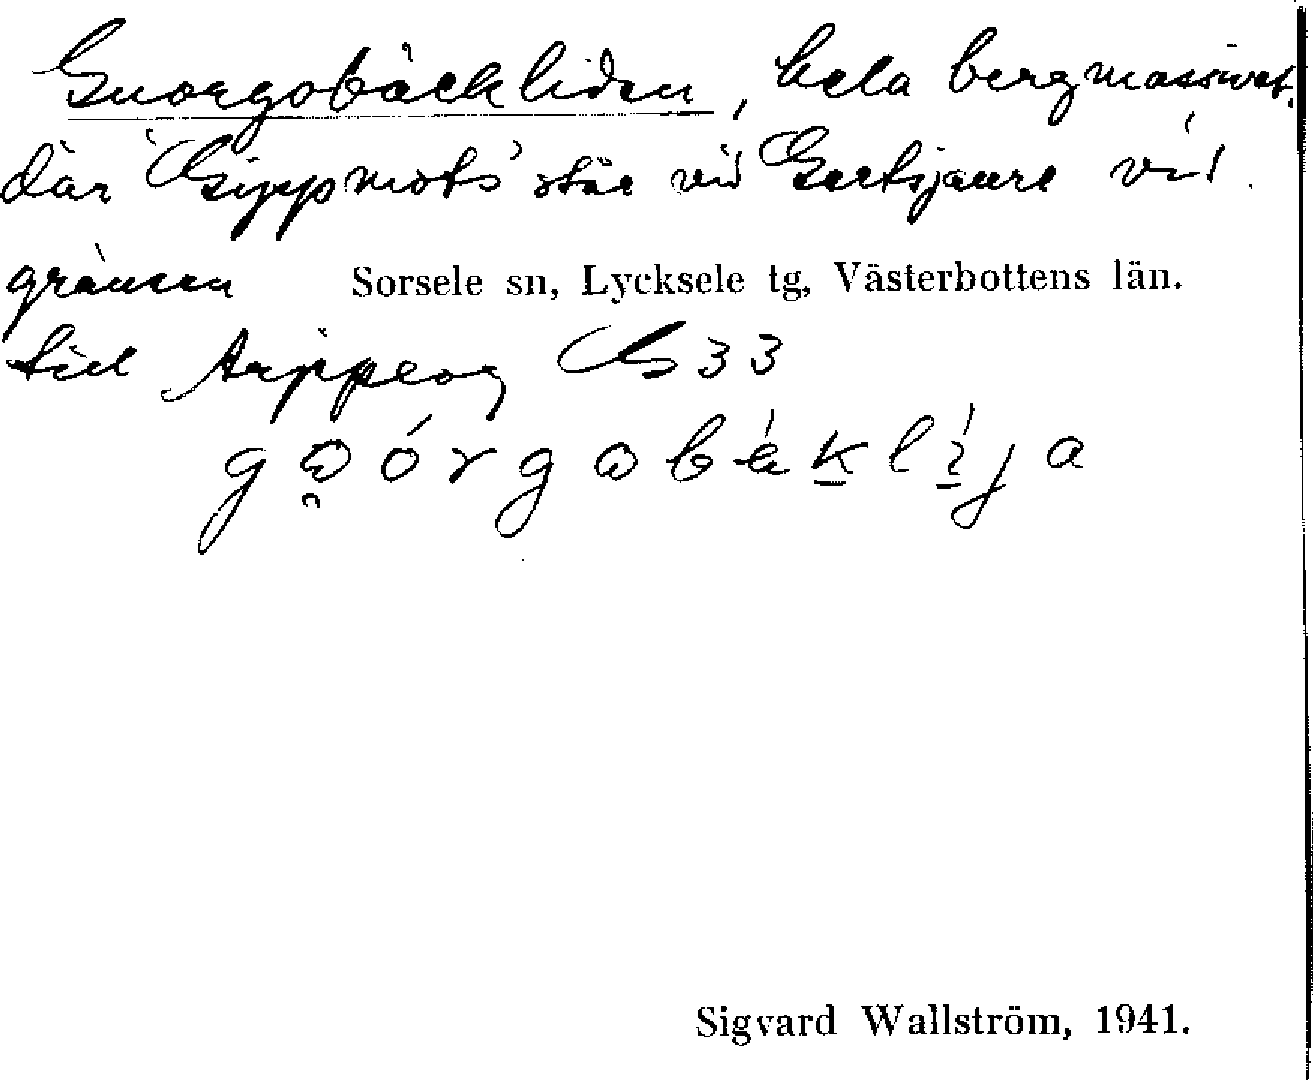 Guorgobäckliden, hela bergmassivet
där "Gippmots" står vid Gertsjaure vid
gränsen Sorsele sn, Lycksele tg, Västerbottens län.
till Arjeplog 33
Sigvard Wallström, 1941.